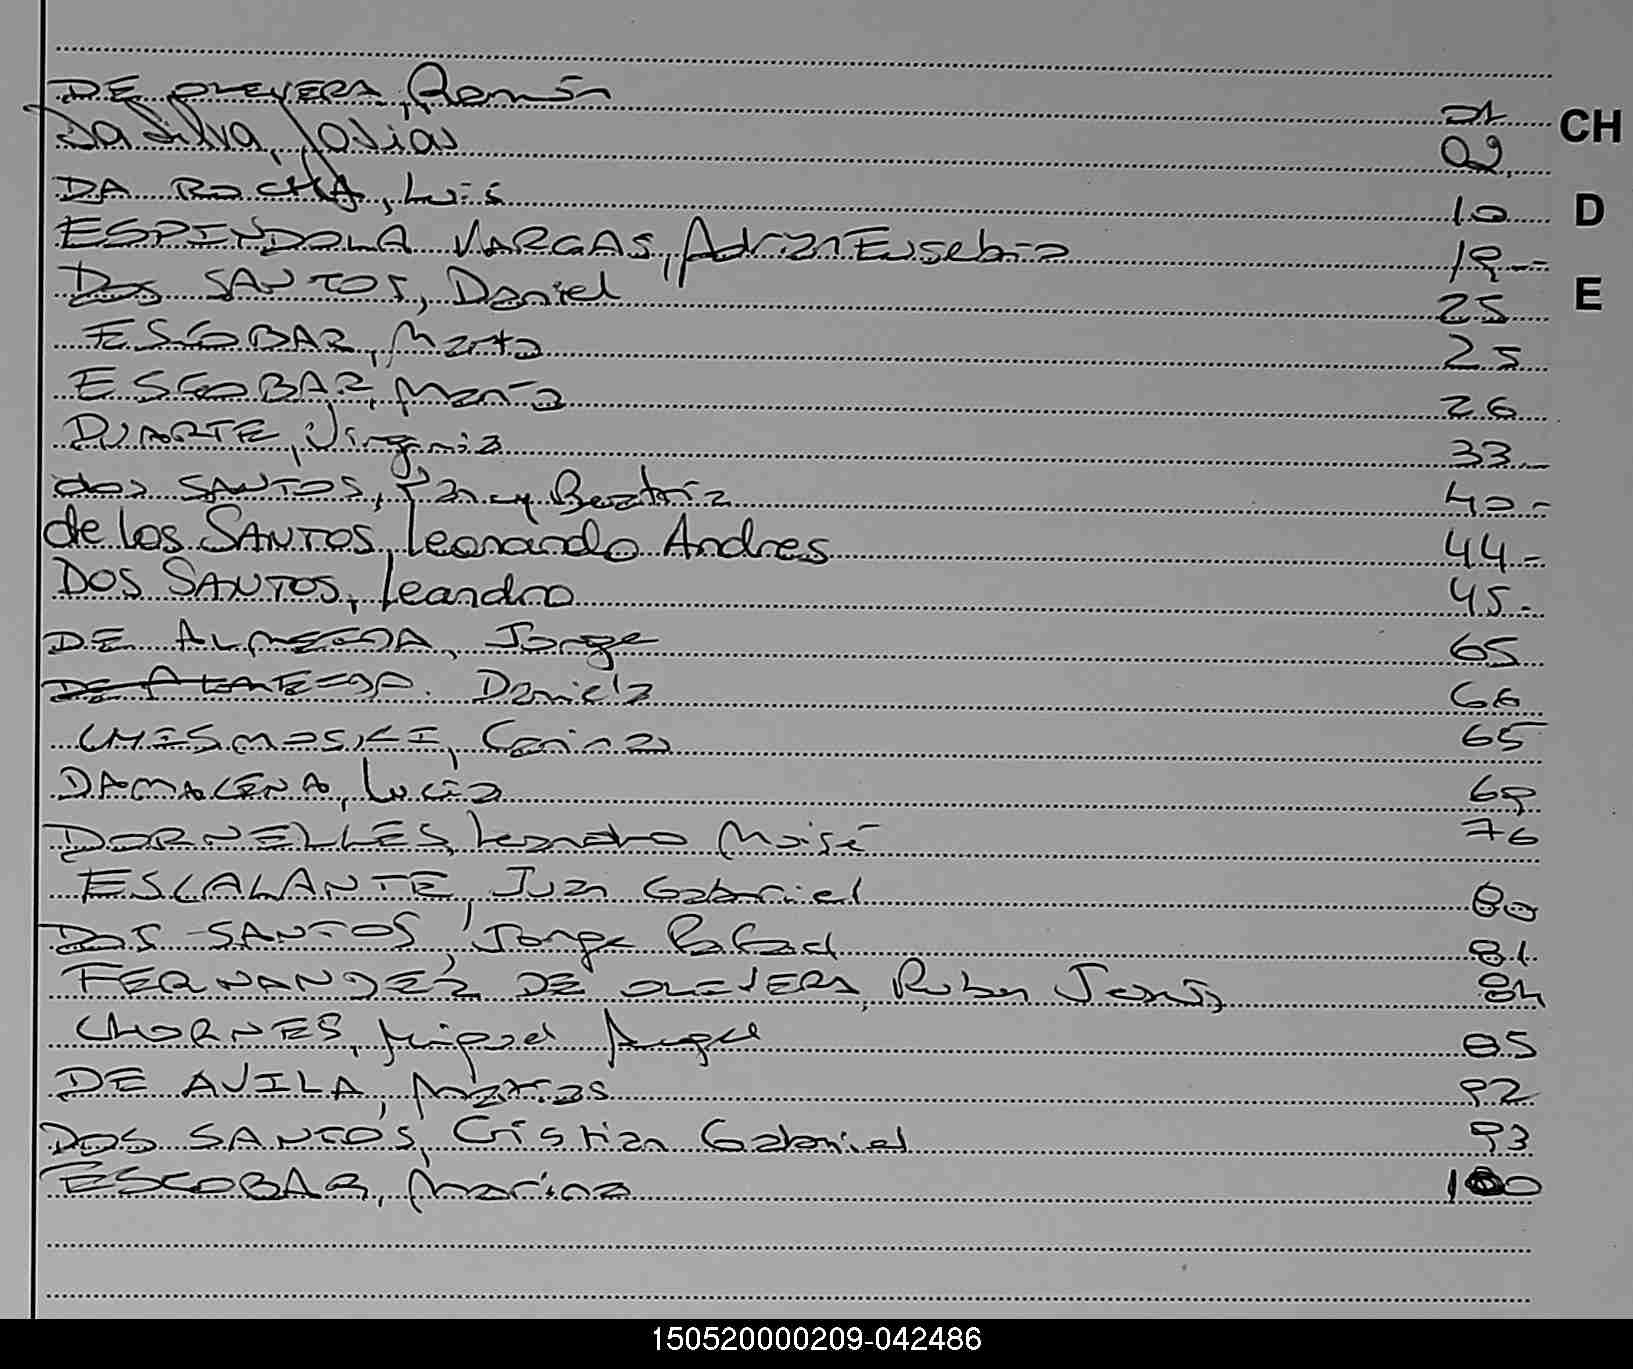 DE OLIVERA, Ramón 01 CH
Da Silva, Josias 02
DA ROCHA, Luis 10 D
ESPINDOLA VARGAS, Adrian Eusebio 19
Dos SANTOS, Daniel 25 E
ESCOBAR, Marta 25
ESCOBAR, María 26
DUARTE, Virginia 33
dos SANTOS, Beatriz 40
de los SANTOS, Leonardo Andres 44
DOS SANTOS, Leandro 45
DE ALMEIDA, Jorge 65
DE ALMEIDA. Daniela 66
CHISMOSKI, Carina 65
DAMACENA, Lucia 69
DORNELLES, Leandro Moisé 76
ESCALANTE, Juan Gabriel 80
DOS SANTOS, Jorge Rafael 81
FERNANDEZ DE OLIVERA, Ruben Jesús 84
CHORNES, Miguel Angel 85
DE AVILA, Matias 92
DOS SANTOS, Cristian Gabriel 93
ESCOBAR, Marina 100
150520000209-042486